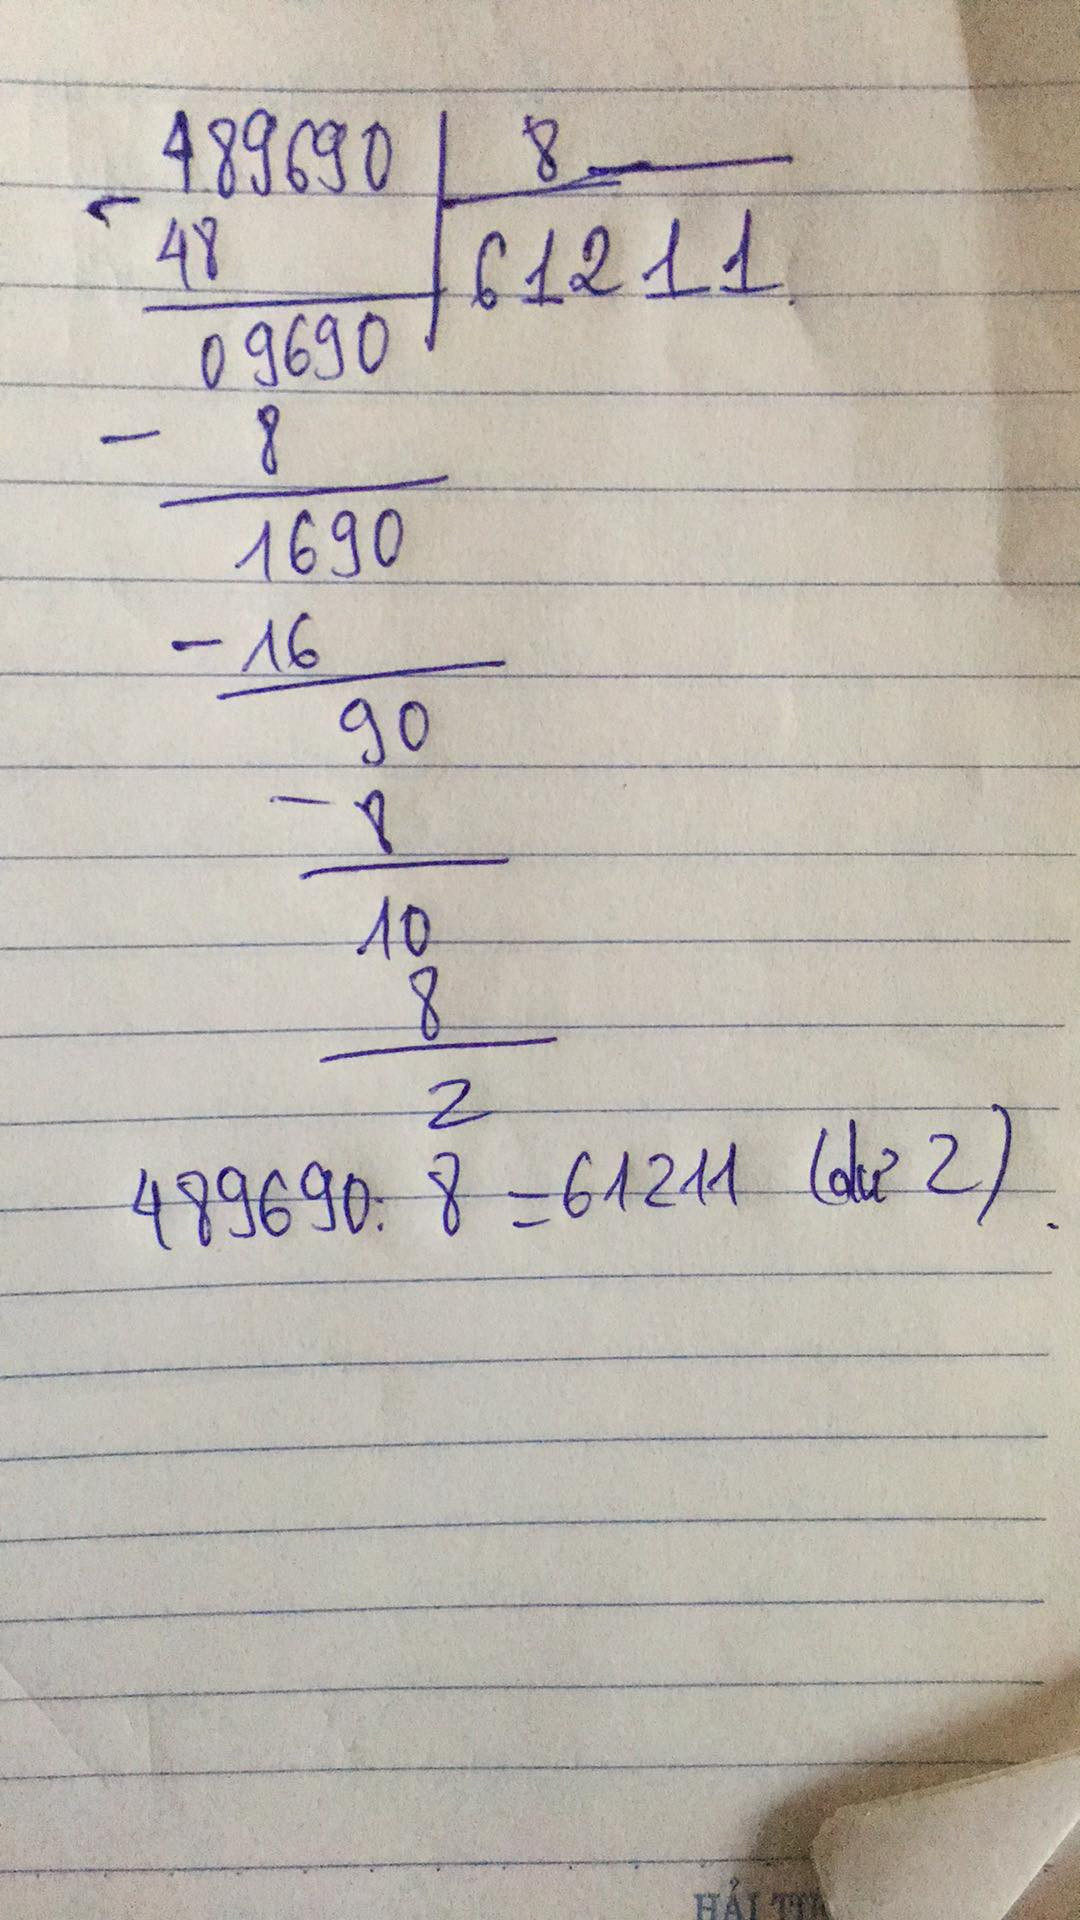 489690 8
- 48 61211.
09690
- 8
1690
- 16
90
- 8
10
8
2
489690: 8 = 61211 (dư 2).
HẢI